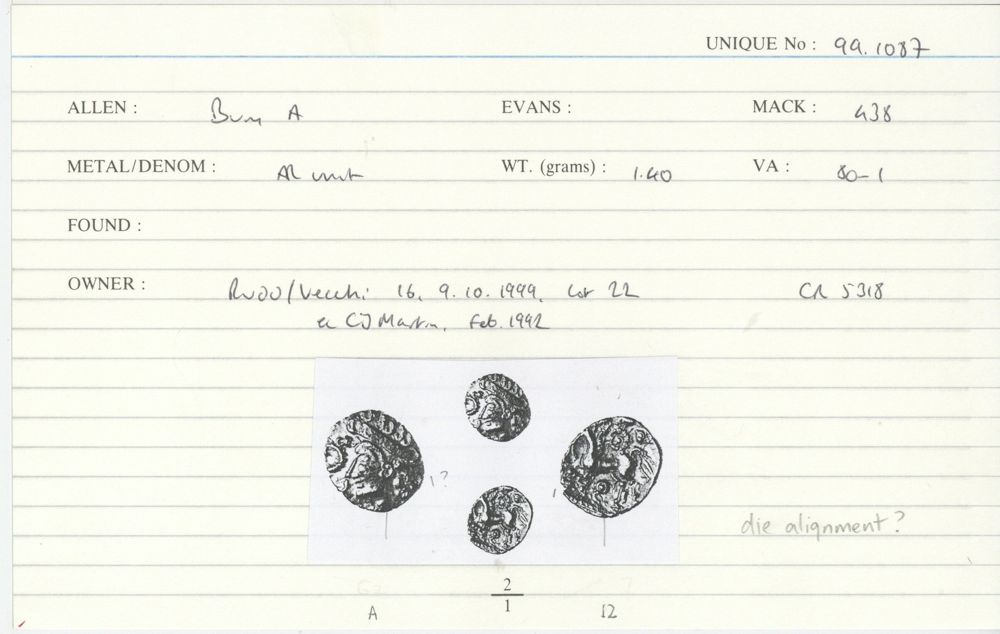 UNIQUE No : 99.1087
ALLEN : Bury A EVANS : MACK : 438
METAL/DENOM : AR unit WT. (grams) : 1.40 VA : 80-1
FOUND :
OWNER : Rudd/Vecchi 16, 9.10.1999, lot 22 CR 5318
ex CJ Martin, Feb. 1992
1?
1
die alignment?
2
1
A 12